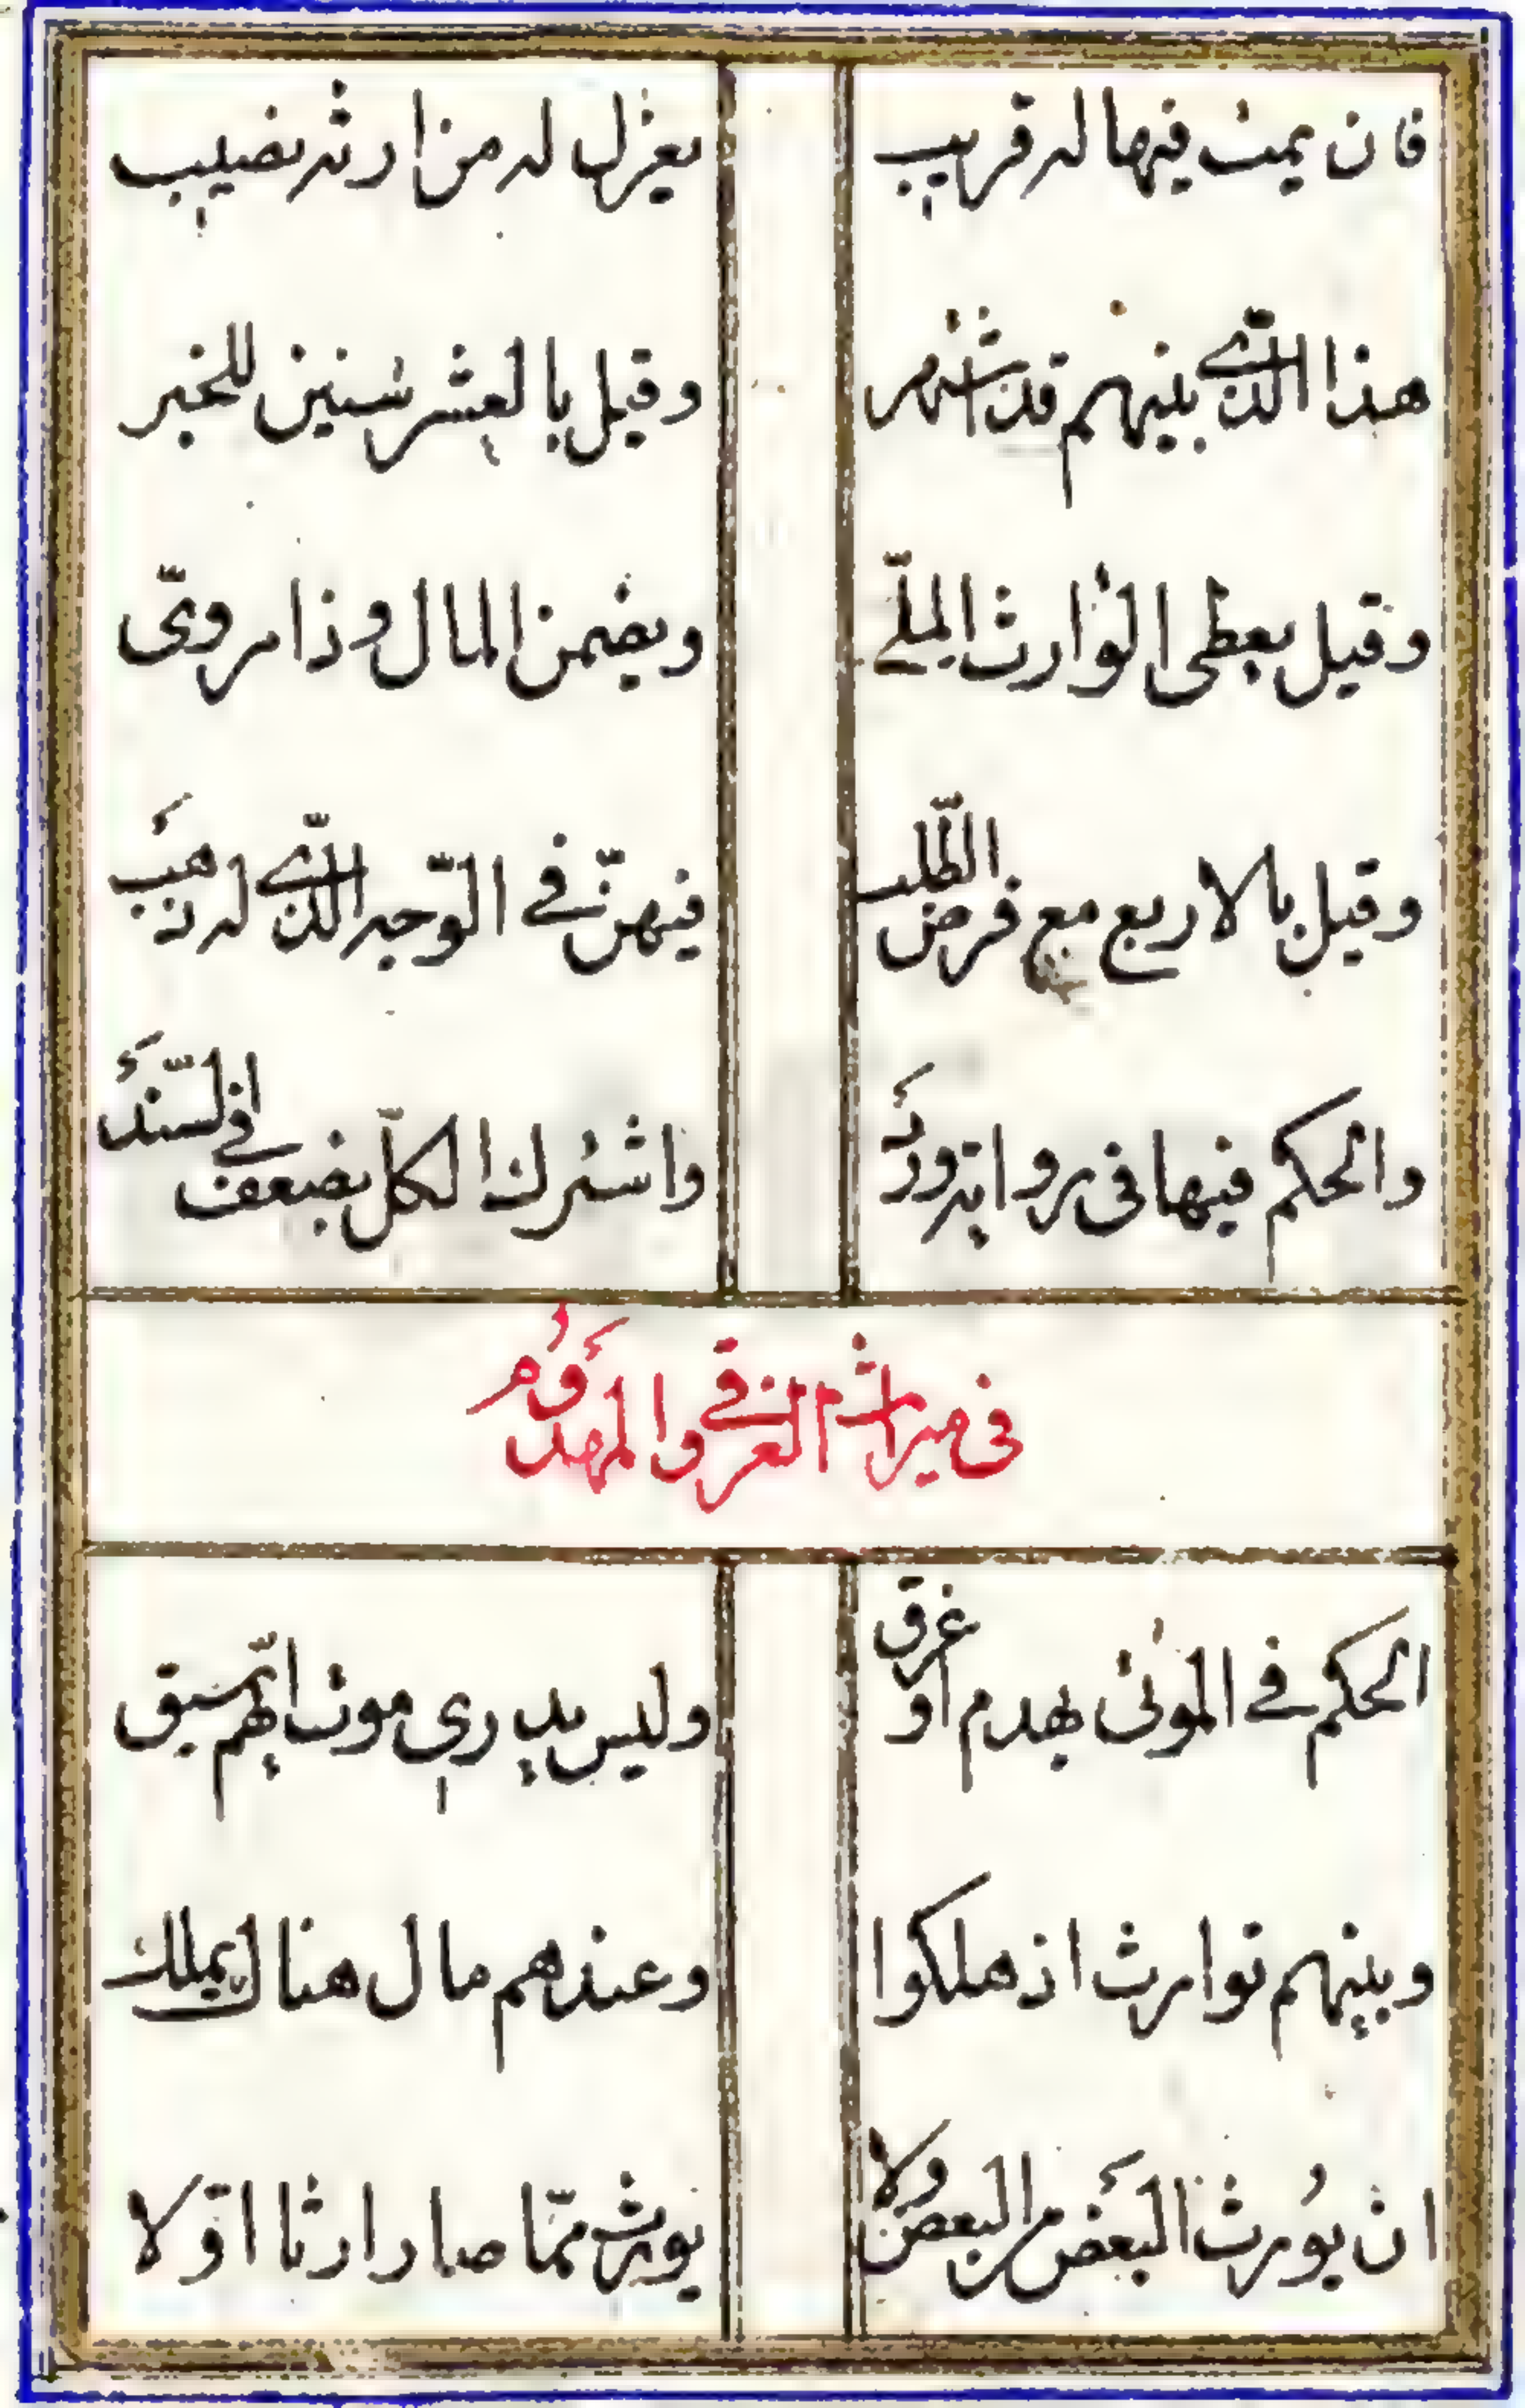 فان يمت فيها له قريب يعزل له من ارثه نصيب
هذا الّذي بينهم قد اشتهر وقيل بالعشر سنين للخبر
وقيل يعطى الوارث الملّي ويضمن المال وذا مرويّ
وقيل بالاربع مع فرض الطّلب فيهنّ في الوجه الّذي له ذهب
والحكم فيها في رواية ورد واشترك الكلّ بضعف في السّند
في ميراث الغرقى والمهدوم
الحكم في الموتى بهدم او غرق وليس يدرى موت ايّهم سبق
وبينهم توارث اذ هلكوا وعندهم مال هناك يملك
ان يورث البعض من البعض ولا يورث ممّا صار ارثا اوّلا